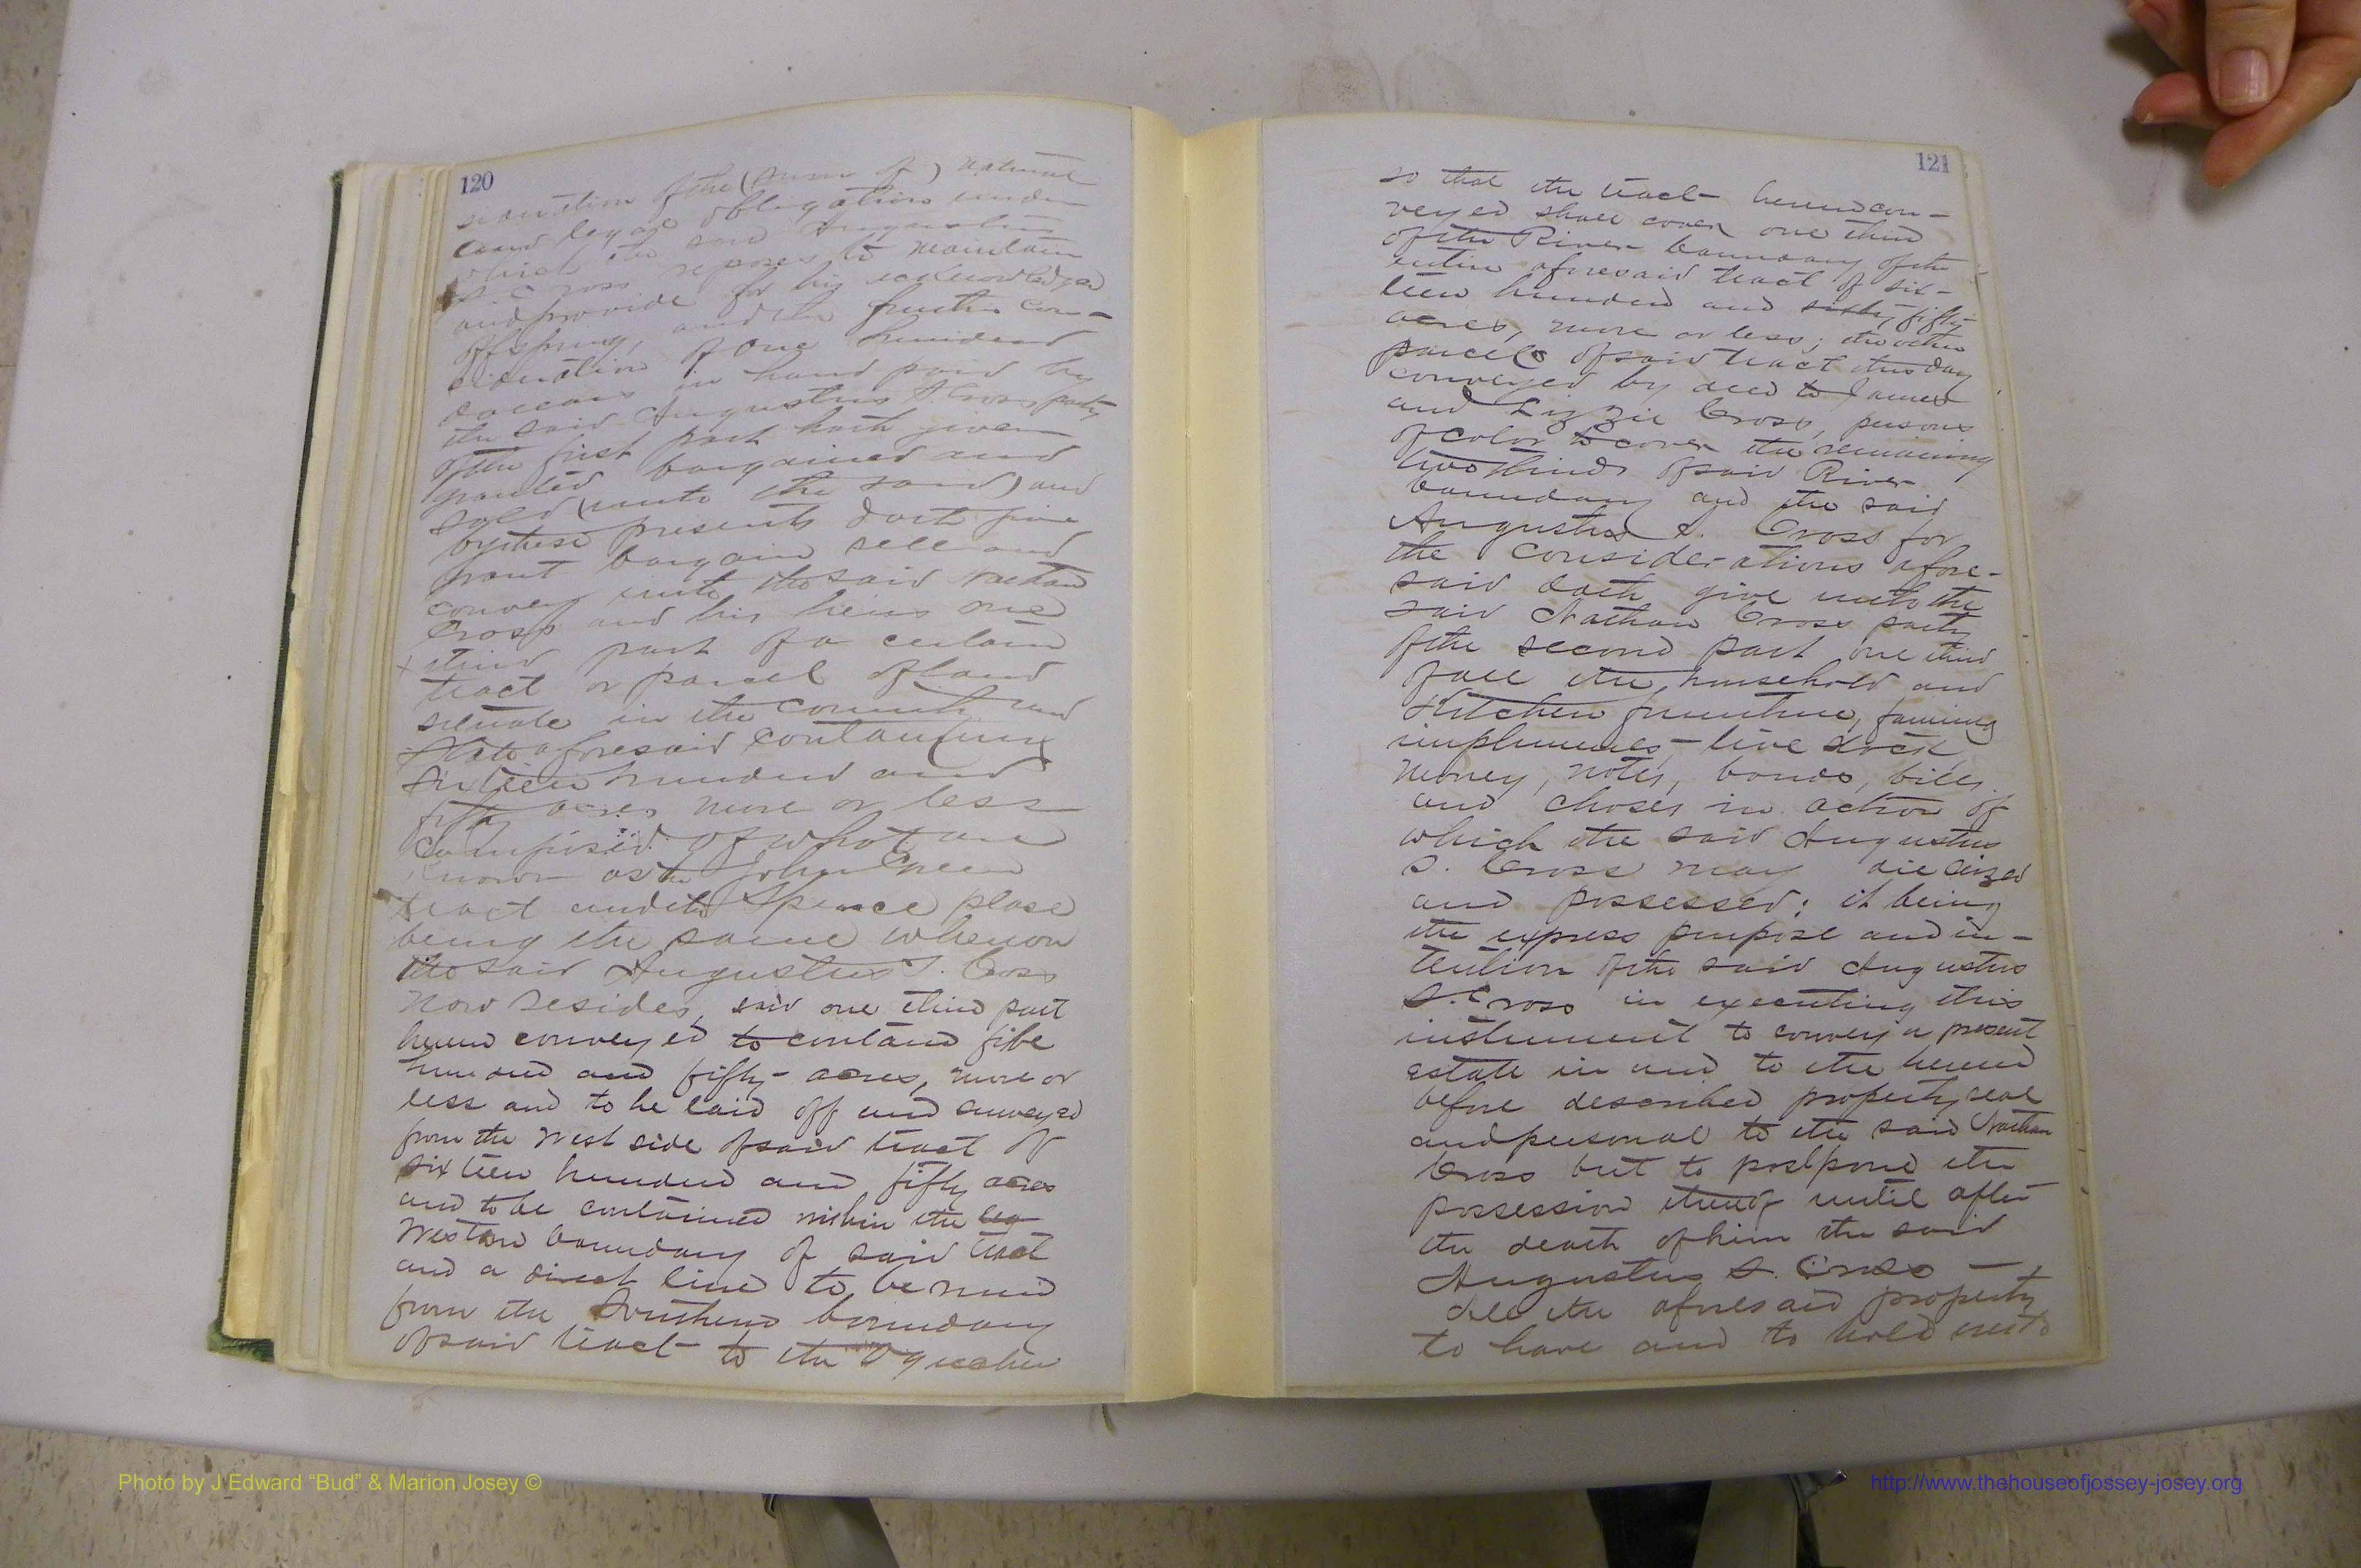 120
sideration of the (sum of) natural
and legal obligations under
which the said Augustus
S. Cross reposes to maintain
and provide for his acknowledged
offspring, and the further con-
sideration of one hundred
dollars in hand paid by
the said Augustus S. Cross party
of the first part hath given
granted bargained and
sold (unto the said) and
by these presents doth give
grant bargain sell and
convey unto the said Nathan
Cross and his heirs one
third part of a certain
tract or parcel of land
situate in the County and
State aforesaid containing
sixteen hundred and
fifty acres more or less
composed of what are
known as the John Green
tract and the Spence place
being the same whereon
the said Augustus S. Cross
now resides, said one third part
herein conveyed to contain five
hundred and fifty acres, more or
less and to be laid off and surveyed
from the West side of said tract of
sixteen hundred and fifty acres
and to be contained within the
Western boundary of said tract
and a direct line to be run
from the Southern boundary
of said tract to the Ogeechee
121
so that the tract herein con-
veyed shall cover one third
of the River boundary of the
entire aforesaid tract of six-
teen hundred and sixty, fifty
acres, more or less; the other
parcels of said tract this day
conveyed by deed to James
and Lizzie Cross, persons
of color to cover the remaining
two thirds of said River
boundary and the said
Augustus S. Cross for
the considerations afore-
said doth give unto the
said Nathan Cross party
of the second part one third
of all the household and
Kitchen furniture, farming
implements, live stock
money, notes, bonds, bills
and choses in action of
which the said Augustus
S. Cross may die seized
and possessed; it being
the express purpose and in-
tention of the said Augustus
S. Cross in executing this
instrument to convey a present
estate in and to the herein
before described property, real
and personal to the said Nathan
Cross but to postpone the
possession thereof until after
the death of him the said
Augustus S. Cross —
All the aforesaid property
to have and to hold unto
Photo by J Edward “Bud” & Marion Josey ©
http://www.thehouseofjossey-josey.org